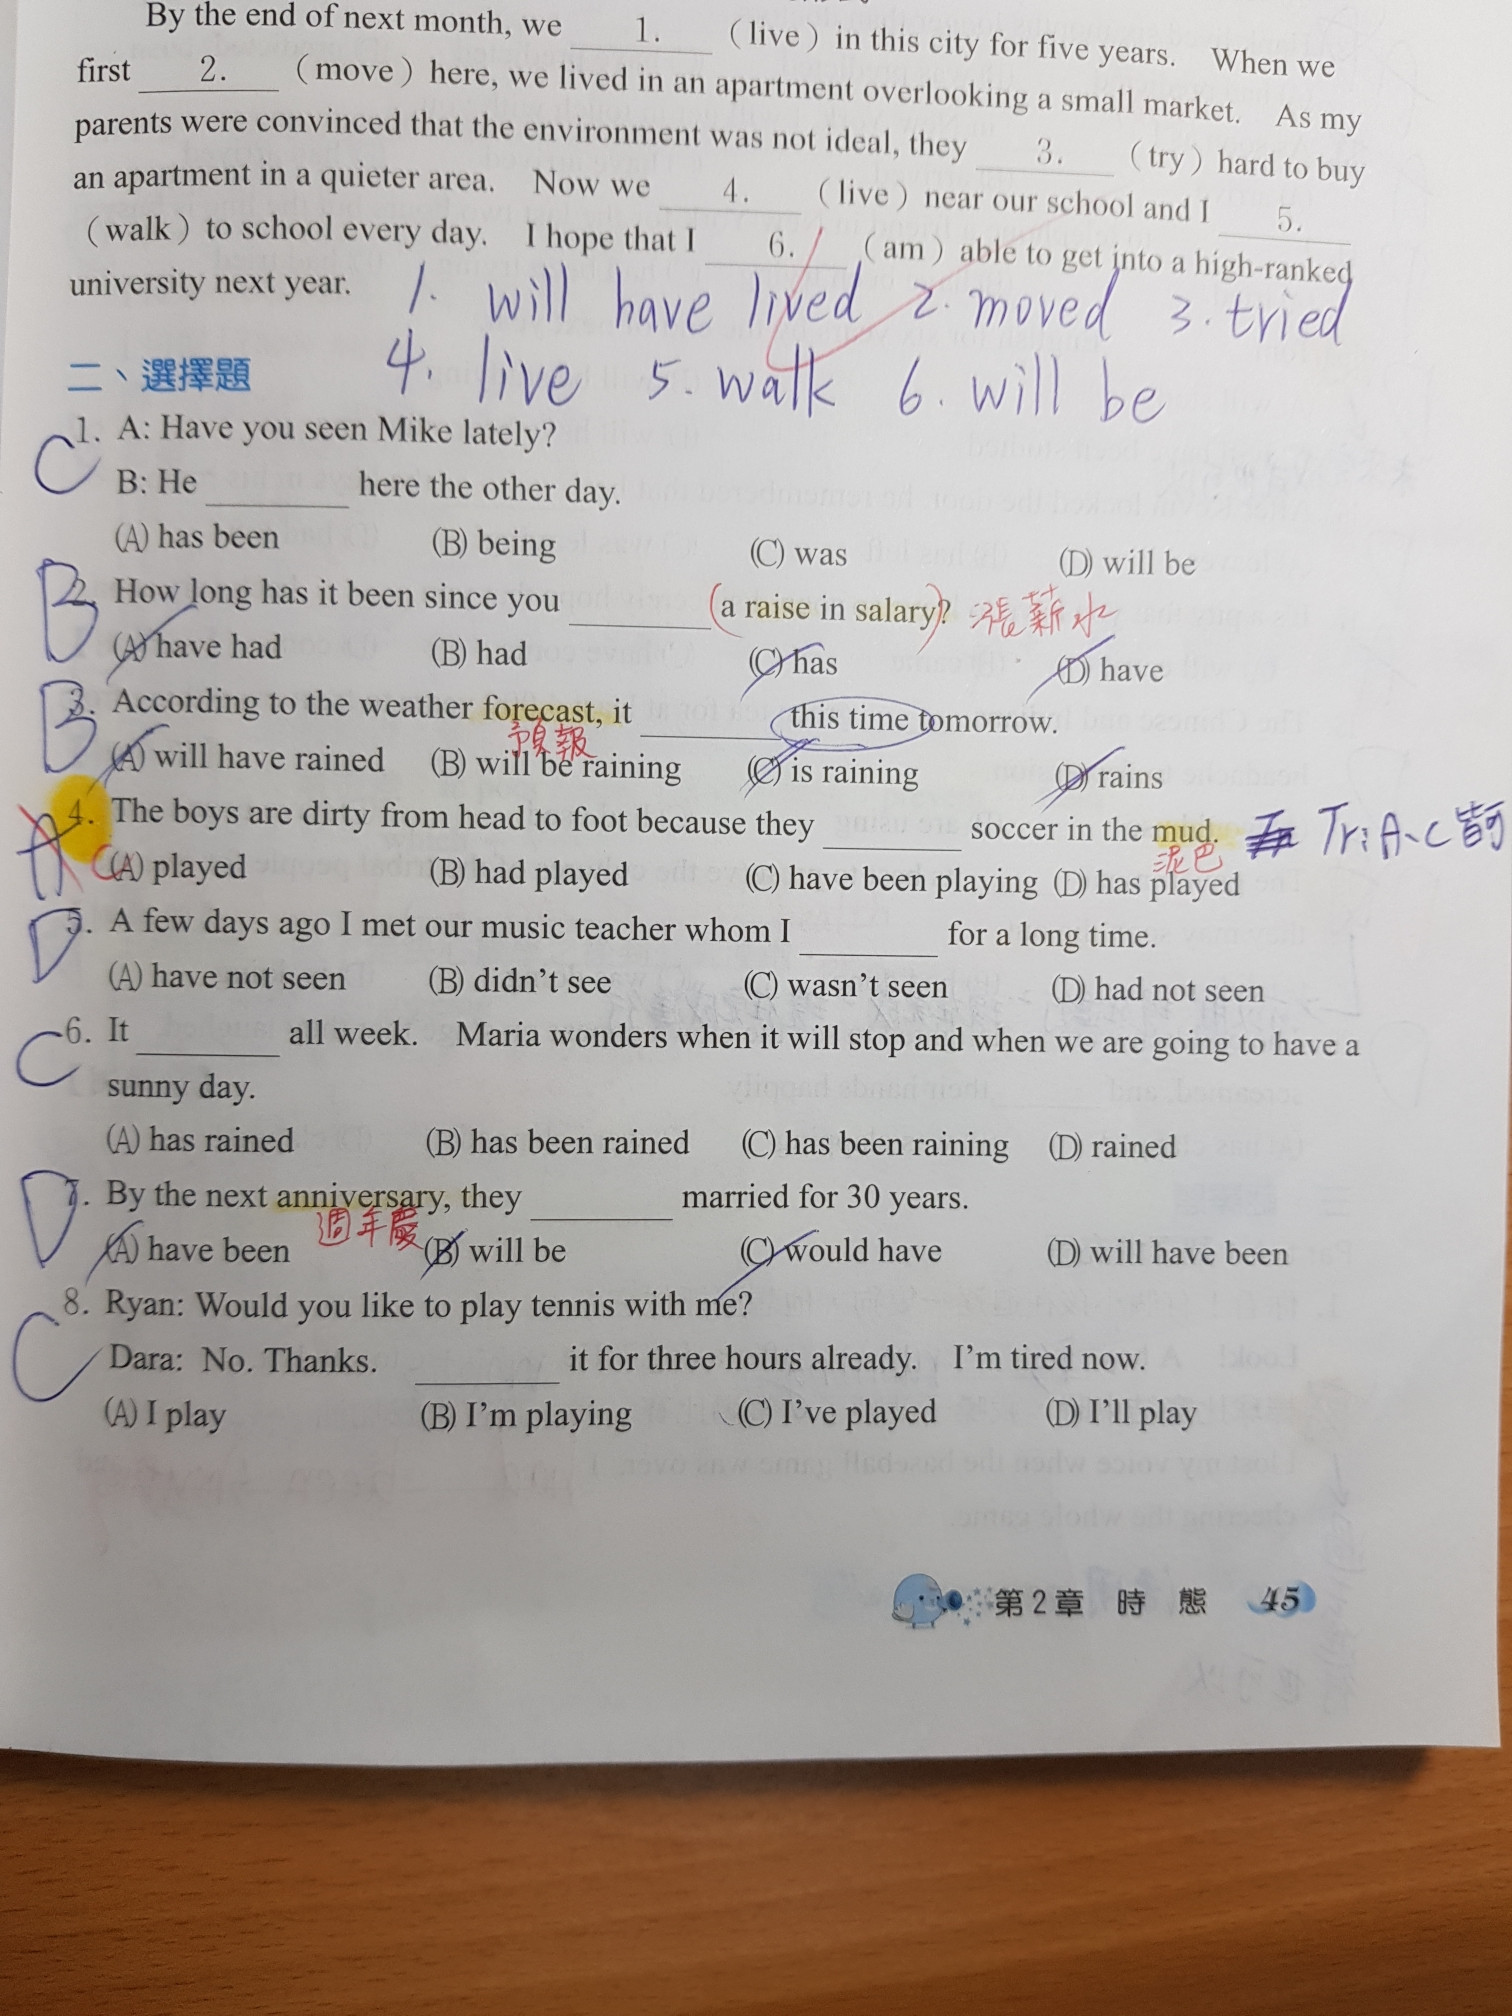 By the end of next month, we 1. （live）in this city for five years. When we
first 2. （move）here, we lived in an apartment overlooking a small market. As my
parents were convinced that the environment was not ideal, they 3. （try）hard to buy
an apartment in a quieter area. Now we 4. （live）near our school and I 5.
（walk）to school every day. I hope that I 6. （am）able to get into a high-ranked
university next year.
1. will have lived 2. moved 3. tried
4. live 5. walk 6. will be
二、選擇題
C 1. A: Have you seen Mike lately?
B: He ______ here the other day.
(A) has been (B) being (C) was (D) will be
B 2. How long has it been since you ______ (a raise in salary)? 漲薪水
(A) have had (B) had (C) has (D) have
B 3. According to the weather forecast, it ______ this time tomorrow.
預報
(A) will have rained (B) will be raining (C) is raining (D) rains
A 4. The boys are dirty from head to foot because they ______ soccer in the mud. Tri A、C皆可
泥巴
C (A) played (B) had played (C) have been playing (D) has played
D 5. A few days ago I met our music teacher whom I ______ for a long time.
(A) have not seen (B) didn't see (C) wasn't seen (D) had not seen
C 6. It ______ all week. Maria wonders when it will stop and when we are going to have a
sunny day.
(A) has rained (B) has been rained (C) has been raining (D) rained
D 7. By the next anniversary, they ______ married for 30 years.
週年慶
(A) have been (B) will be (C) would have (D) will have been
C 8. Ryan: Would you like to play tennis with me?
Dara: No. Thanks. ______ it for three hours already. I'm tired now.
(A) I play (B) I'm playing (C) I've played (D) I'll play
第2章 時 態 45